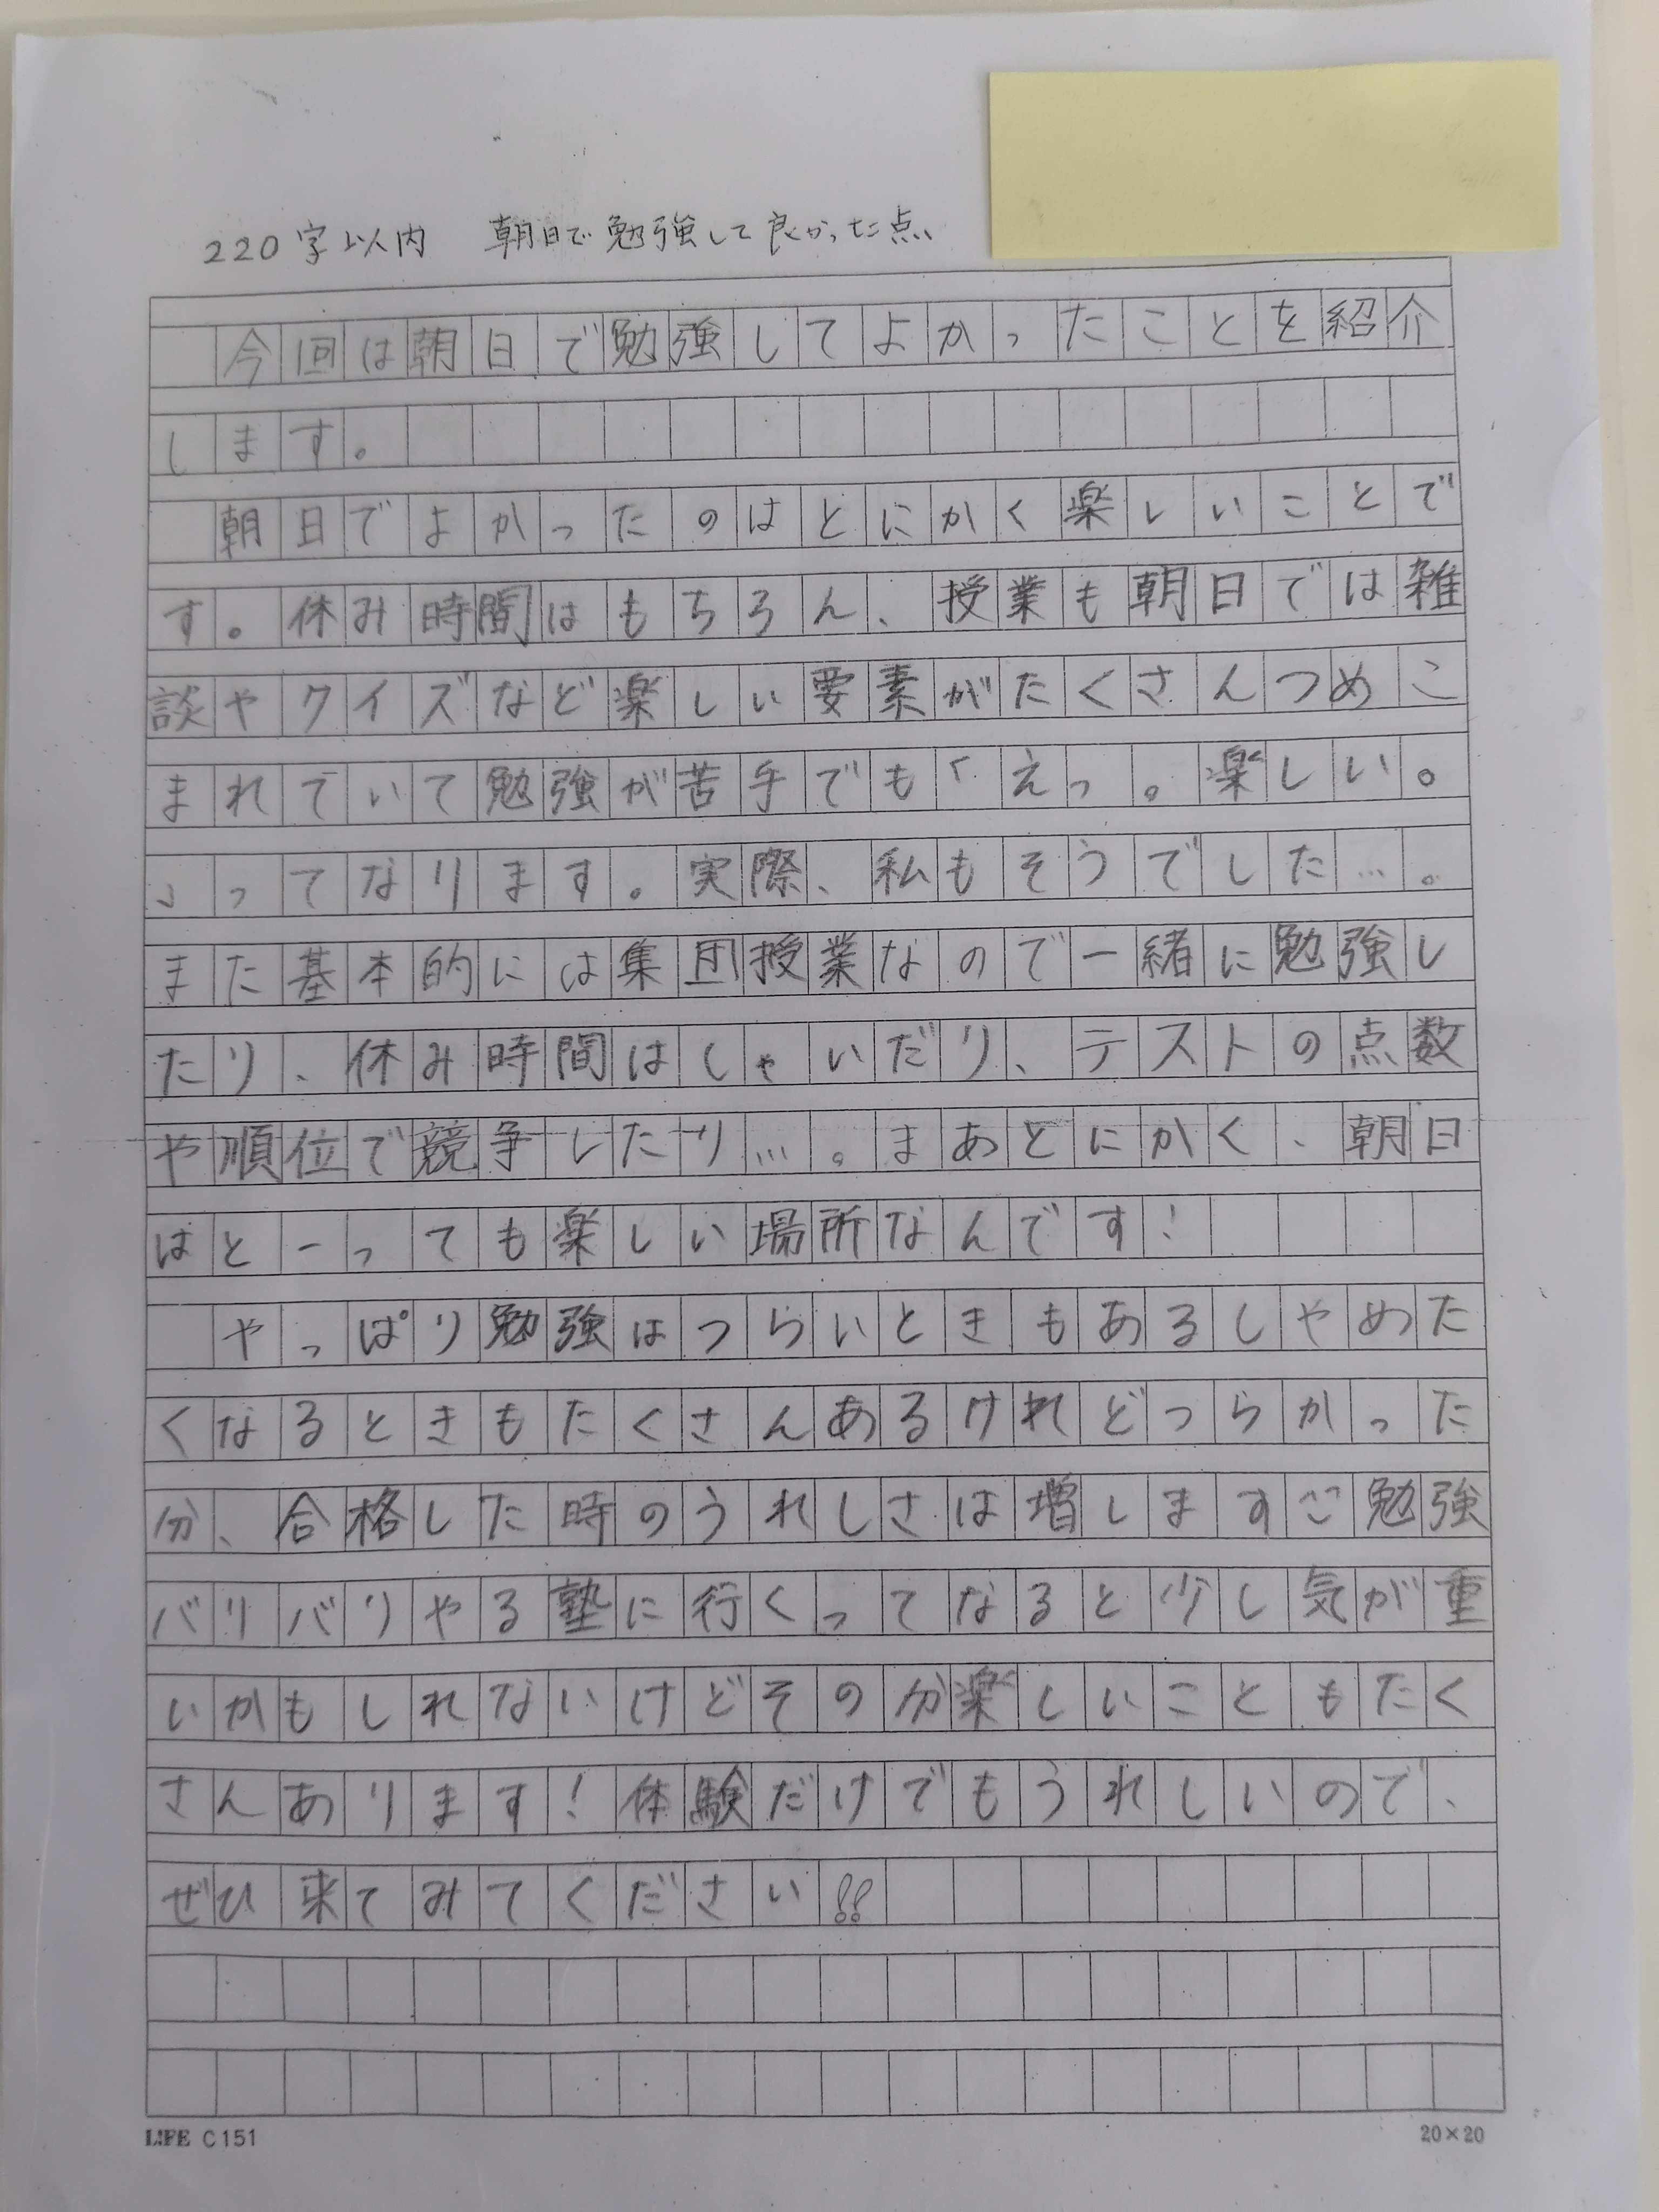 220字以内　朝日で勉強して良かった点
　今回は朝日で勉強してよかったことを紹介
します。
　朝日でよかったのはとにかく楽しいことで
す。休み時間はもちろん、授業も朝日では雑
談やクイズなど楽しい要素がたくさんつめこ
まれていて勉強が苦手でも「えっ。楽しい。
」ってなります。実際、私もそうでした…。
また基本的には集団授業なので一緒に勉強し
たり、休み時間はしゃいだり、テストの点数
や順位で競争したり…。まあとにかく、朝日
はとーっても楽しい場所なんです！
　やっぱり勉強はつらいときもあるしやめた
くなるときもたくさんあるけれどつらかった
分、合格した時のうれしさは増します勉強
バリバリやる塾に行くってなると少し気が重
いかもしれないけどその分楽しいこともたく
さんあります！体験だけでもうれしいので、
ぜひ来てみてください!!
LIFE C151
20×20